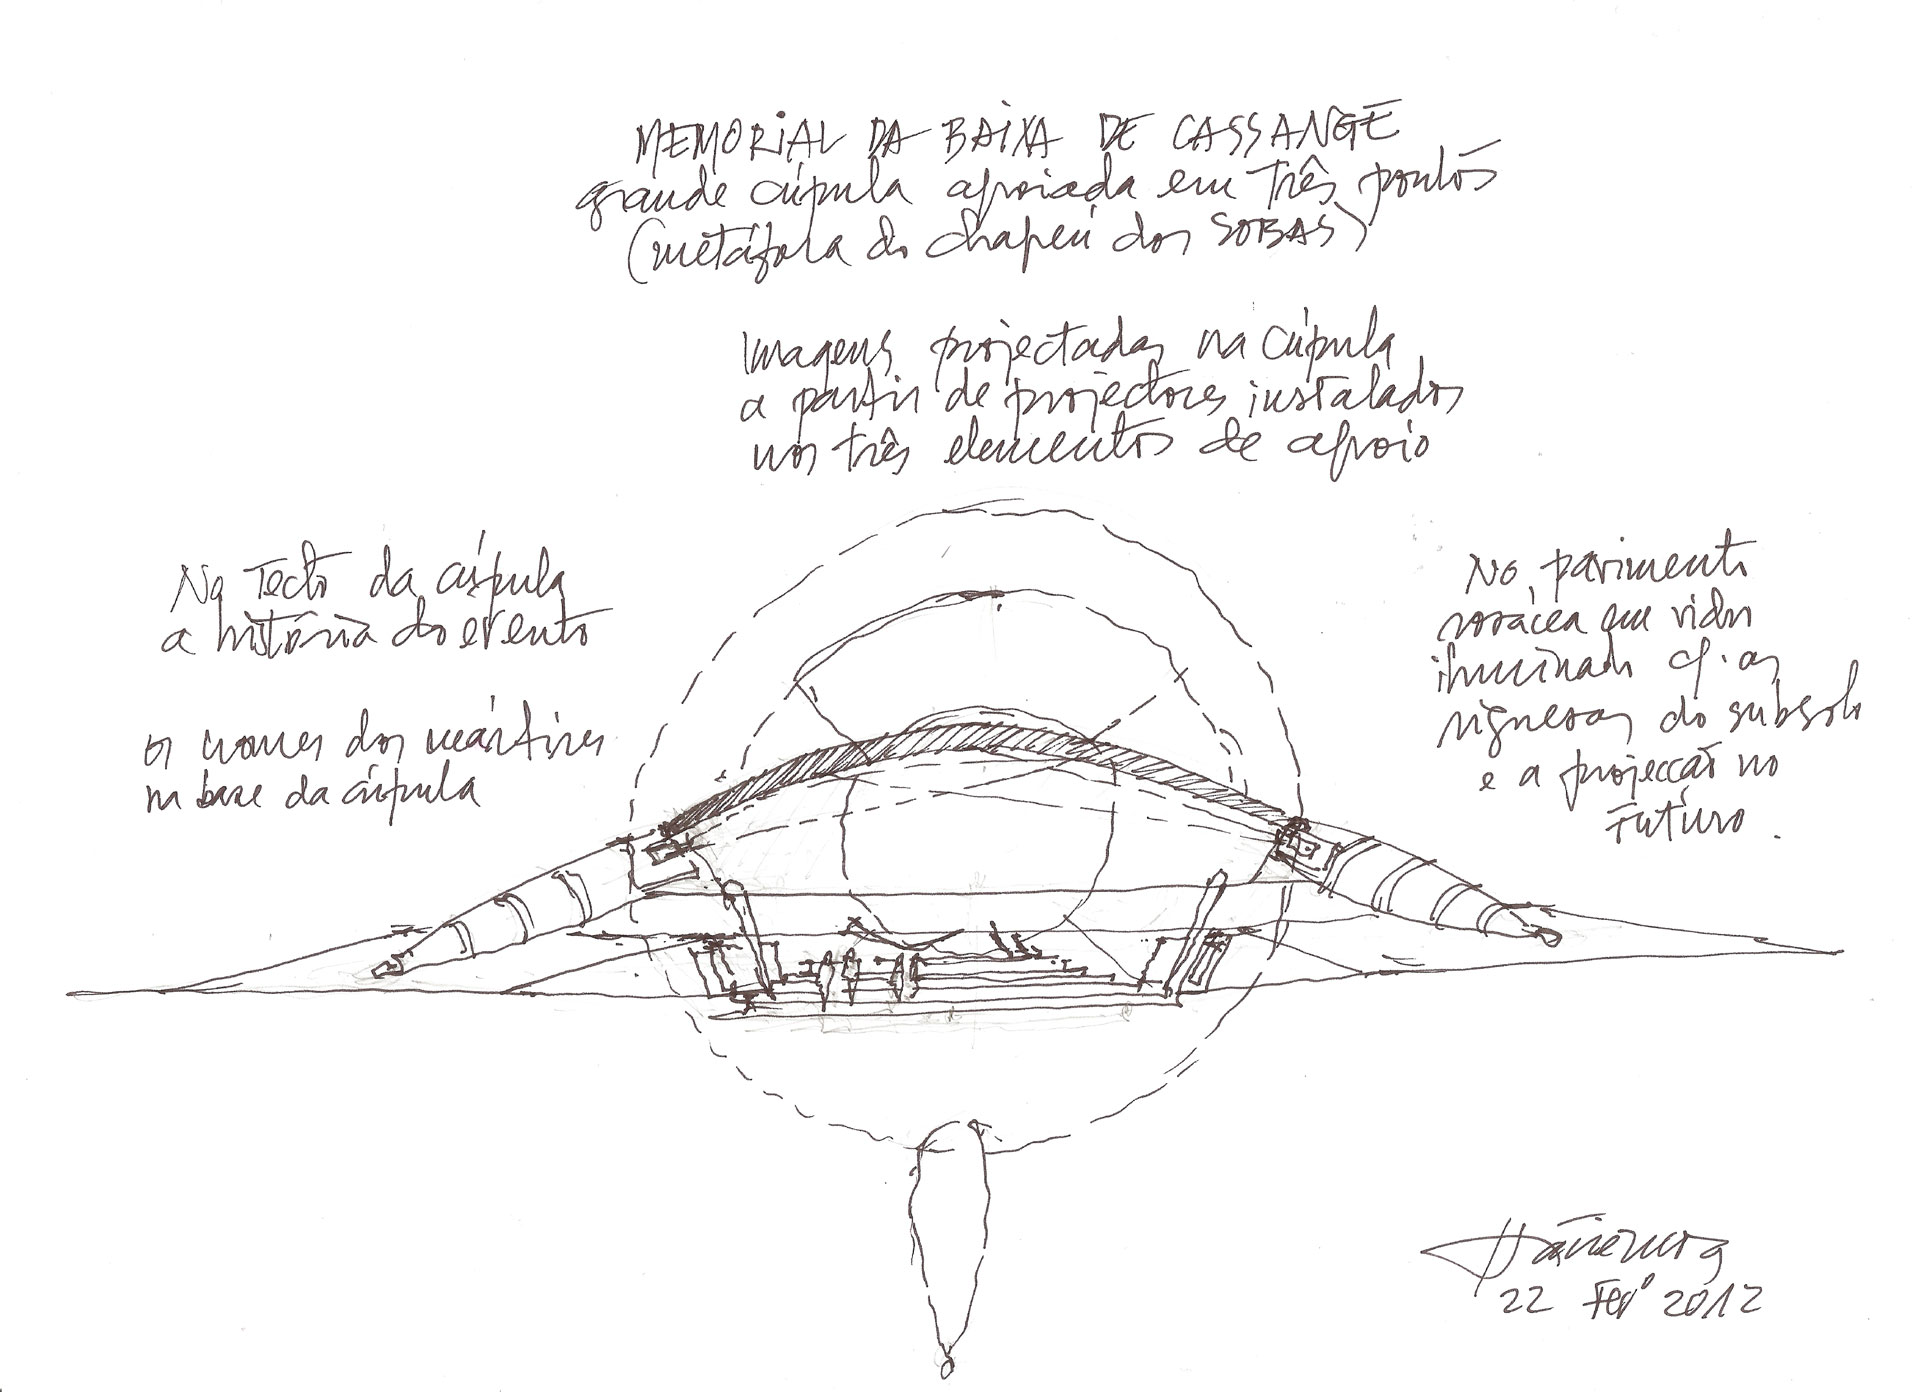 MEMORIAL DA BAIXA DE CASSANGE
grande cúpula apoiada em três pontos
(metáfora do chapéu dos SOBAS)
Imagens projectadas na cúpula
a partir de projectores instalados
nos três elementos de apoio
No tecto da cúpula
a história do evento
os nomes dos mártires
na base da cúpula
No pavimento
rosácea em vidro
iluminado c/ as
riquezas do subsolo
e a projecção no
Futuro.
22 Fevº 2012